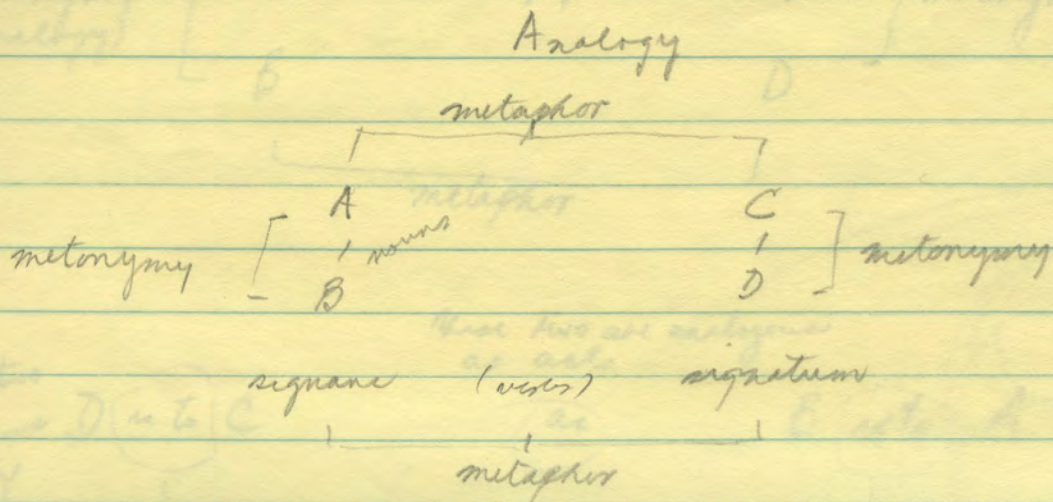 Analogy
metaphor
A C
metonymy nouns metonymy
B D
signans (verbs) signatum
metaphor